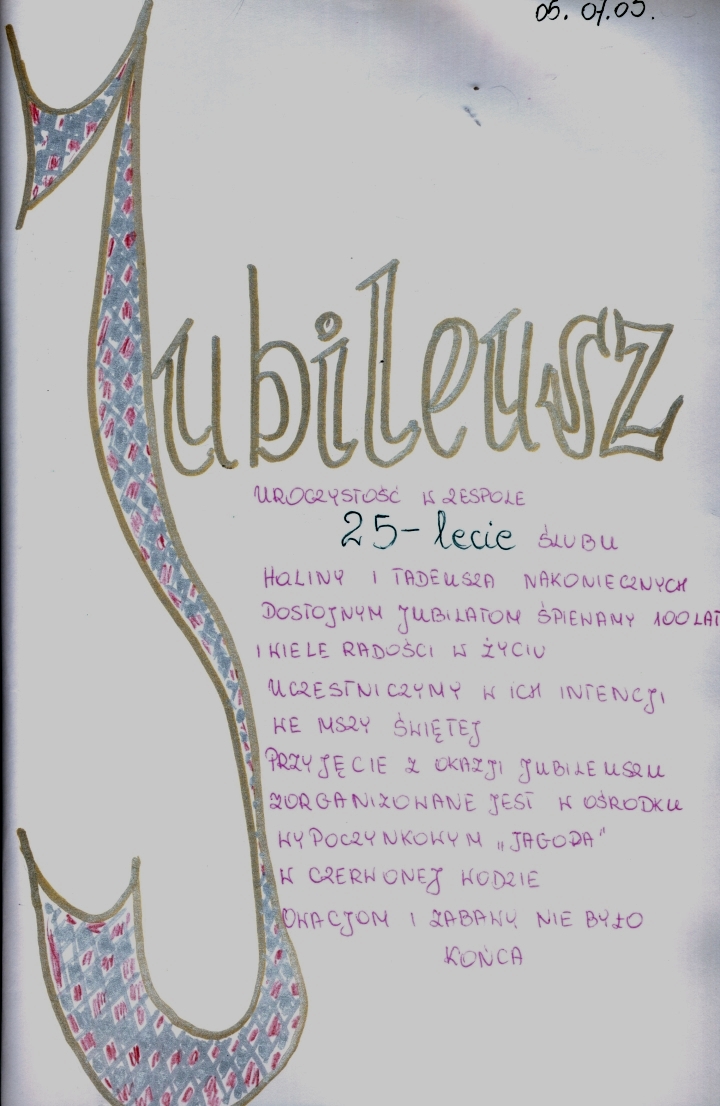 05.07.03.
Jubileusz
UROCZYSTOŚĆ W ZESPOLE
25-lecie ŚLUBU
HALINY I TADEUSZA NAKONIECZNYCH
DOSTOJNYM JUBILATOM ŚPIEWAMY 100 LAT
I WIELE RADOŚCI W ŻYCIU
UCZESTNICZYMY W ICH INTENCJI
WE MSZY ŚWIĘTEJ
PRZYJĘCIE Z OKAZJI JUBILEUSZU
ZORGANIZOWANE JEST W OŚRODKU
WYPOCZYNKOWYM „JAGODA"
W CZERWONEJ WODZIE
OWACJOM I ZABAWY NIE BYŁO
KOŃCA